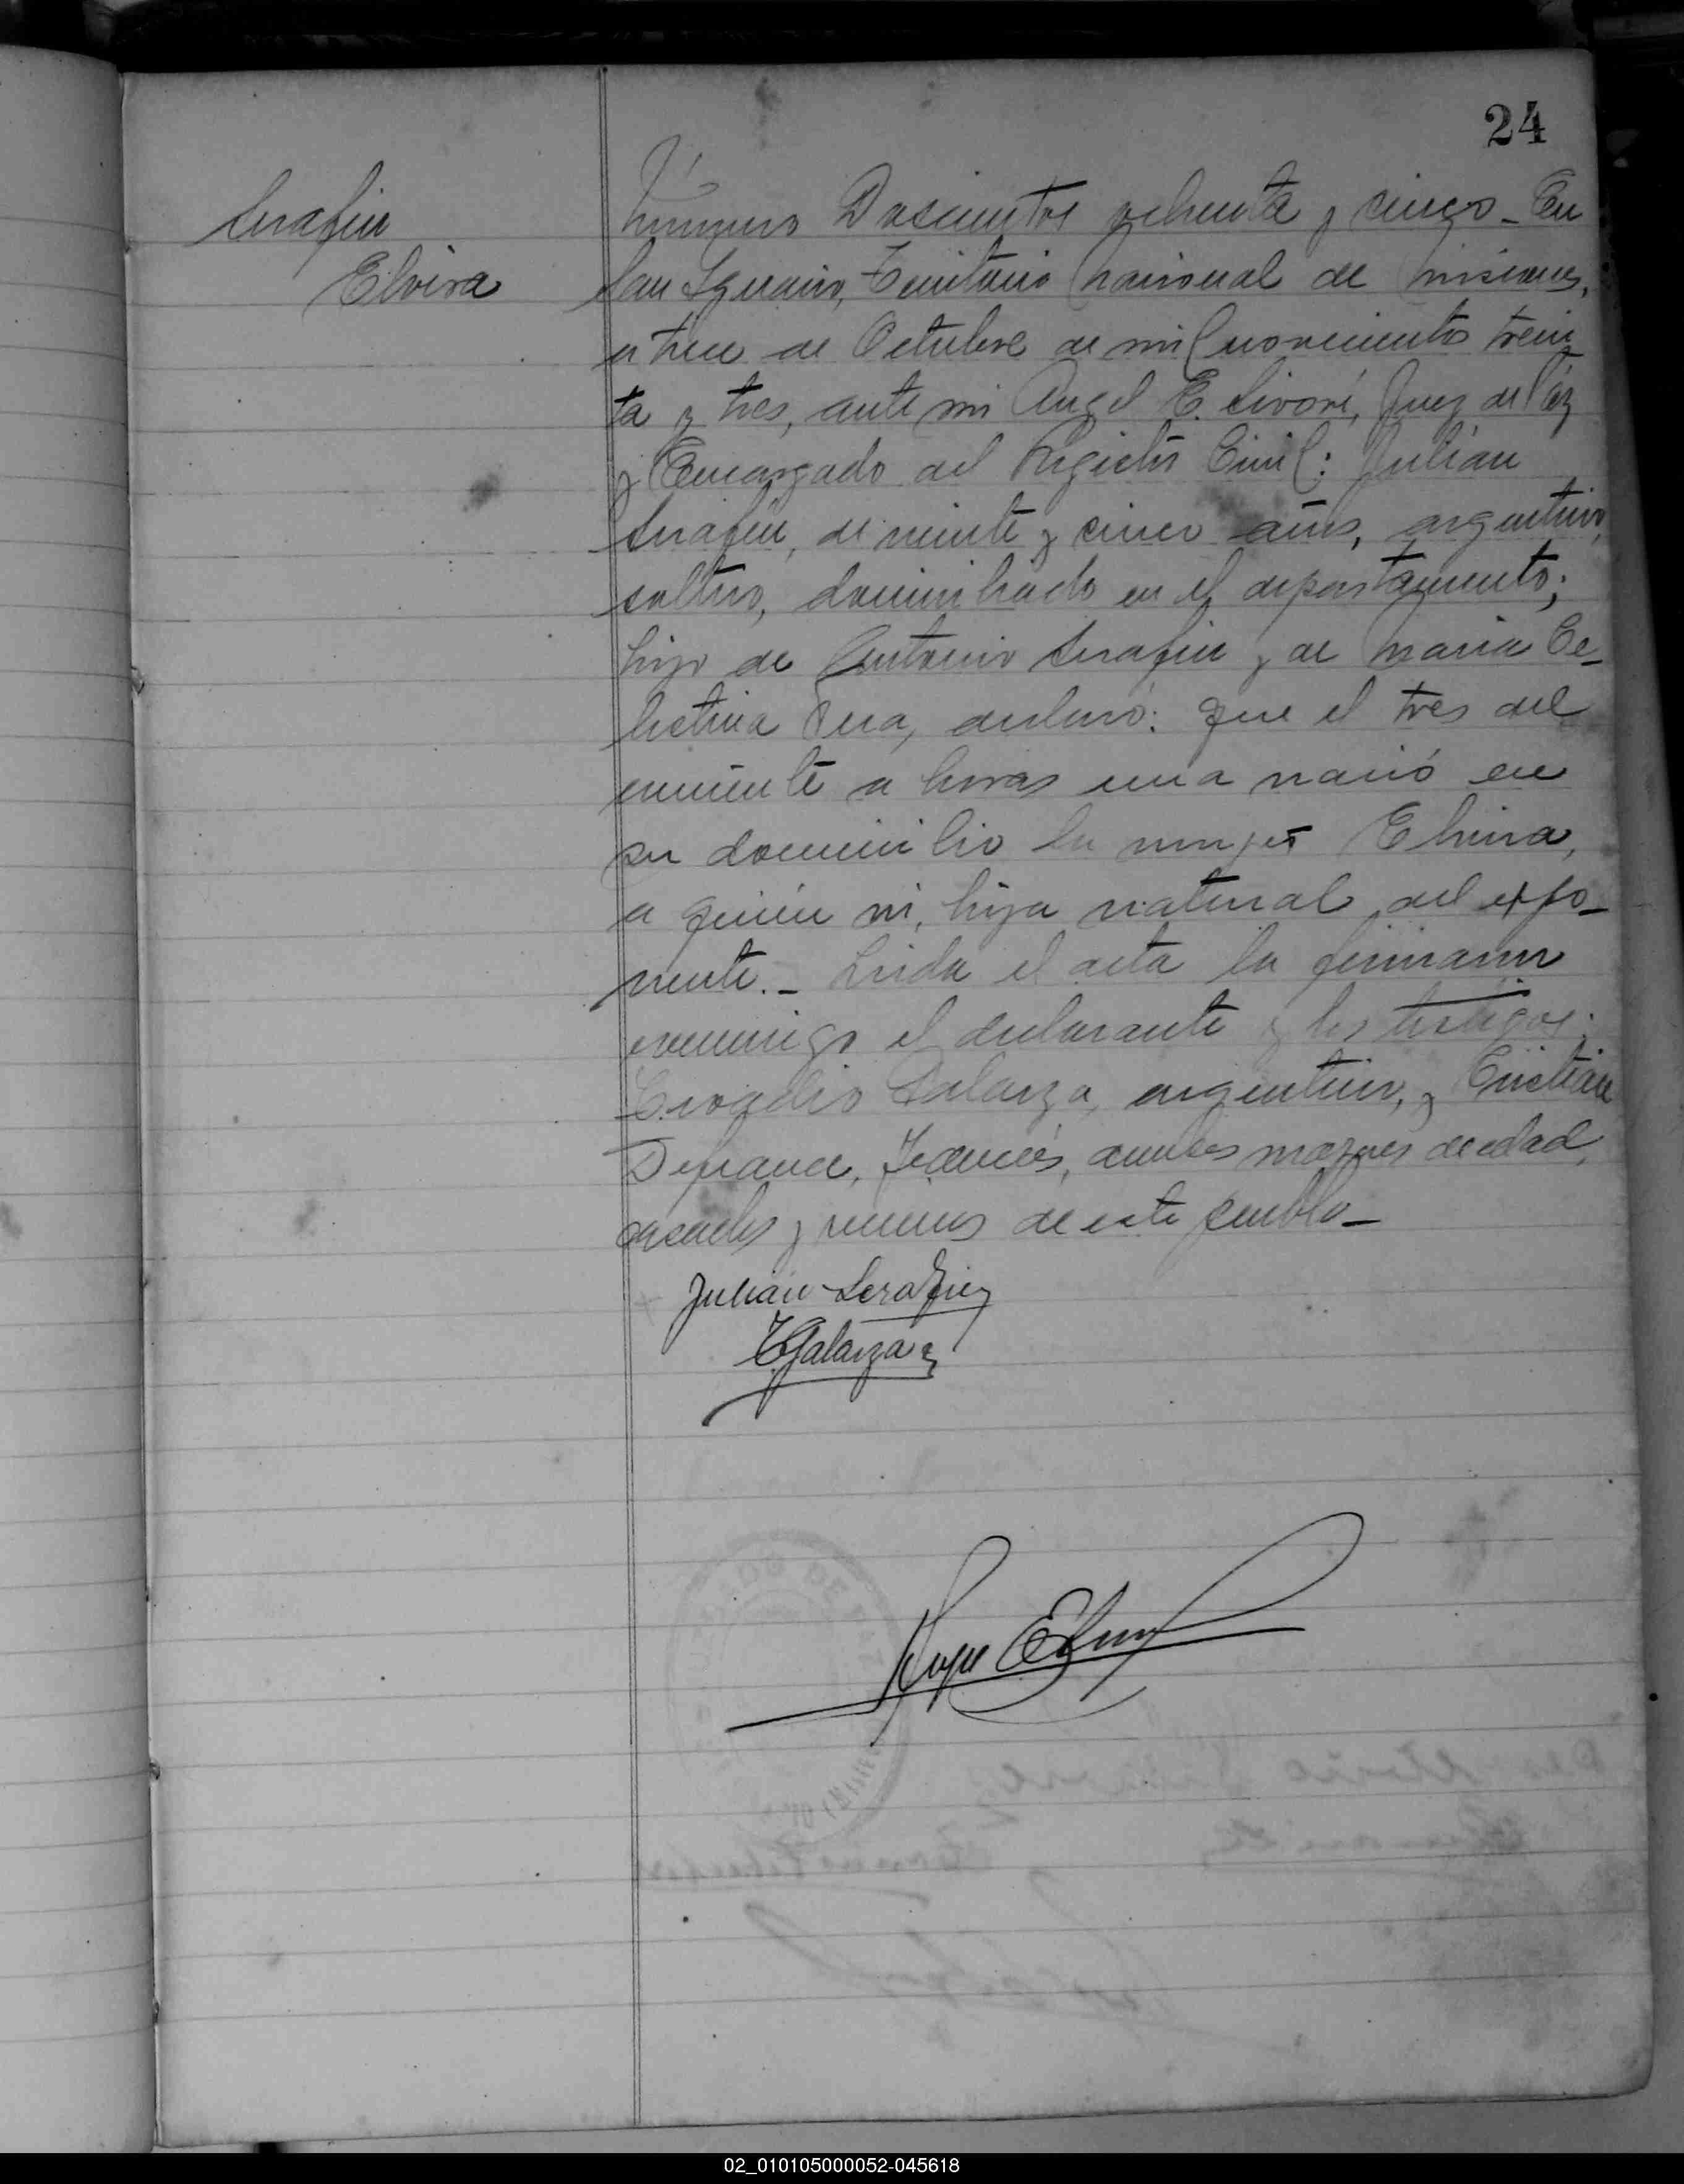 24
Serafin
Elvira
Número Doscientos ochenta y cinco_ En
San Ignacio, Territorio Nacional de Misiones,
a trece de Octubre de mil novecientos trein
ta y tres, ante mi Angel E. Sivori, Juez de Paz
y Encargado del Registro Civil: Julián
Serafin, de veinte y cinco años, argentino,
soltero, domiciliado en el departamento;
hijo de Antonio Serafin y de Maria Ce_
lestina declaró: Que el tres del
corriente a horas una nació en
su domicilio la mujer Elvira,
a quién vi, hija natural del expo_
nente._ Leida el acta la firmaron
conmigo el declarante y los testigos:
Galarza, argentino, y Cristian
Defrance, Francés, ambos mayores de edad,
casados y vecinos de este pueblo_
Julian Serafin
Galarza
JUZGADO DE PAZ